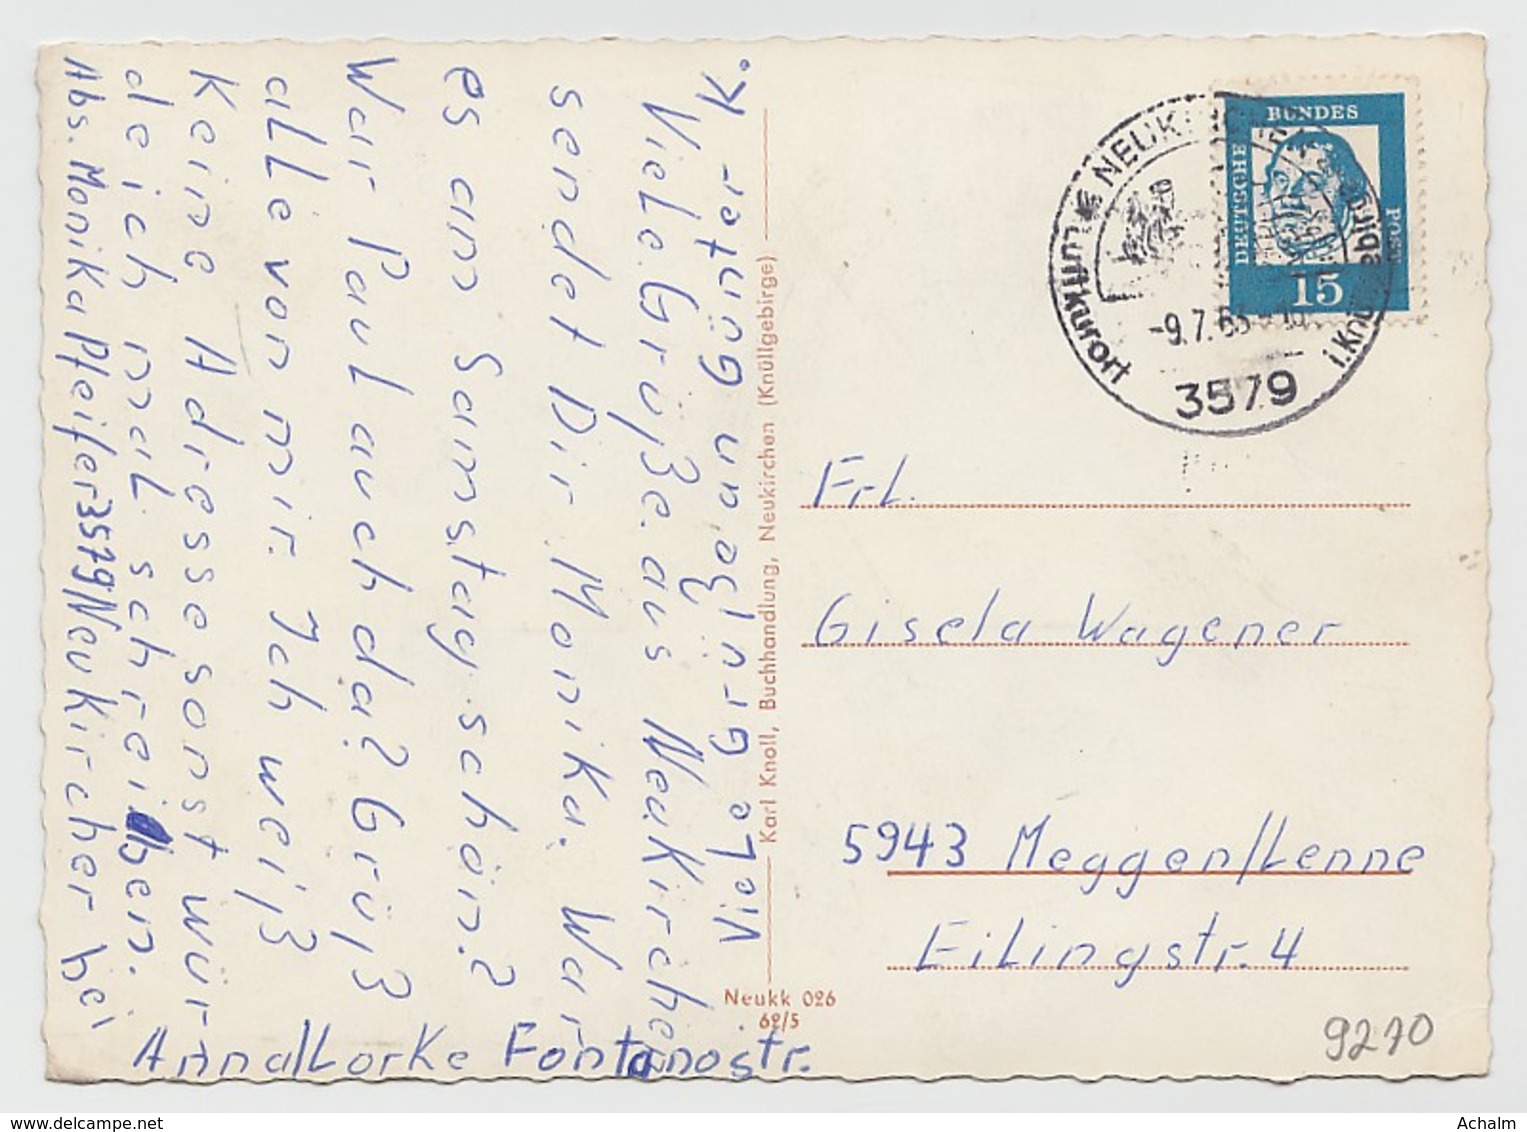 Viele Grüße aus Neukirchen
sendet Dir Monika. War
es am Samstag schön?
War Paul auch da? Grüß
alle von mir. Ich weiß
Keine Adresse sonst wür
de ich mal schreiben.
Abs. Monika Pfeifer 3579 Neukircher bei
Annalorke Fontanostr.
K.
Karl Knoll, Buchhandlung, Neukirchen (Knüllgebirge)
Neukk 026
62/5
DEUTSCHE BUNDES POST
15
Luftkurort
i. Knüllgebirge
-9.7.63
3579
Frl.
Gisela Wagener
5943 Meggen/Lenne
Eilingstr. 4
9210
Achalm